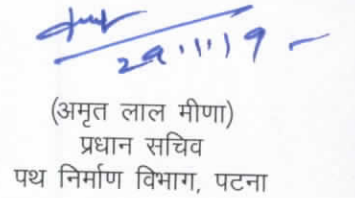 29.11.19
(अमृत लाल मीणा)
प्रधान सचिव
पथ निर्माण विभाग, पटना